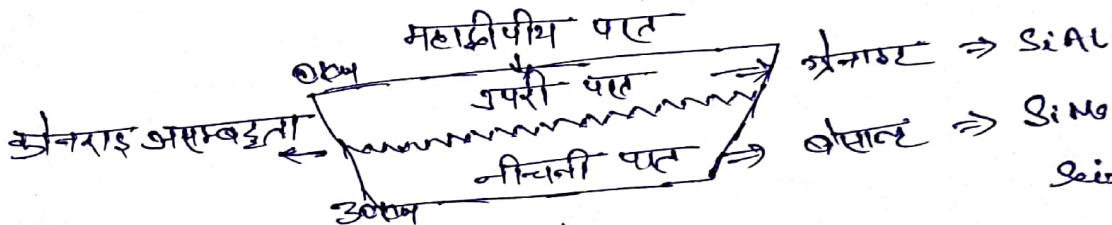 महाद्वीपीय परत
0km
उपरी परत → ग्रेनाइट ⇒ SiAl
कोनराड असम्बद्धता ←
नीचली परत → बेसाल्ट ⇒ SiMa
30km